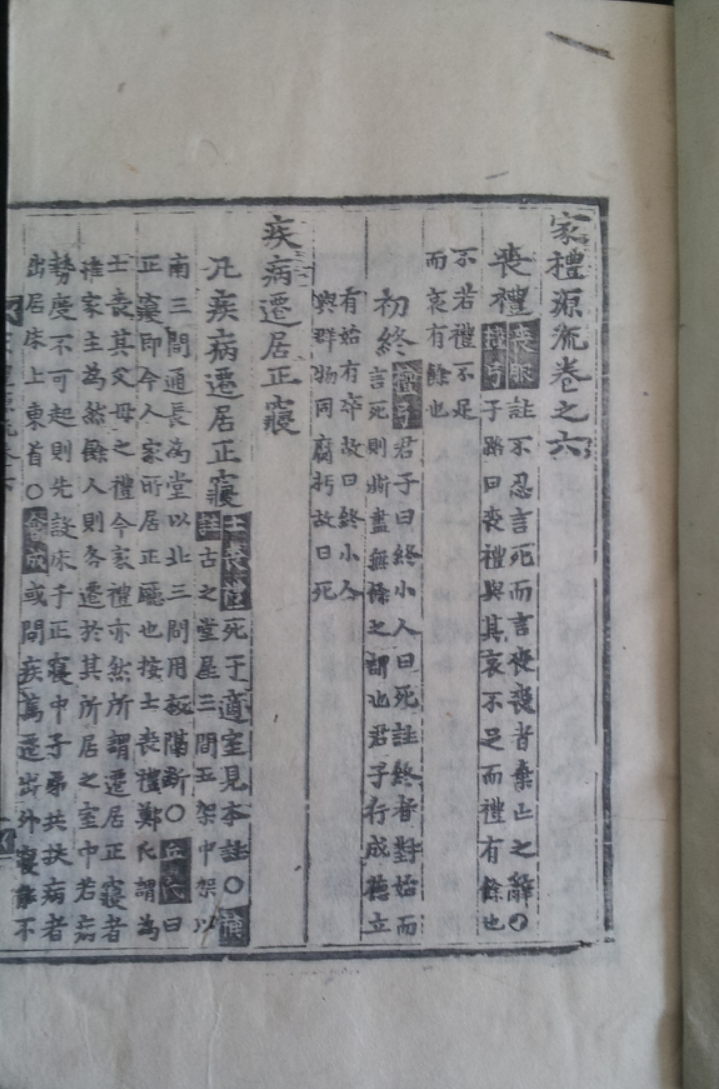 家禮源流卷之六
喪禮 喪服 註不忍言死而言喪喪者棄亡之辭○
檀弓 子路曰喪禮與其哀不足而禮有餘也
不若禮不足
而哀有餘也
初終 檀弓 君子曰終小人曰死註終者對始而
言死則澌盡無餘之謂也君子行成德立
有始有卒故曰終小人
與群物同腐朽故曰死
疾病遷居正寢
凡疾病遷居正寢 士喪記 死于適室見本註○補
註 古之堂屋三間五架中架以
南三間通長為堂以北三間用板隔斷○丘氏曰
正寢即今人家所居正廳也按士喪禮鄭氏謂為
士喪其父母之禮今家禮亦然所謂遷居正寢者
惟家主為然餘人則各遷於其所居之室中若病
勢度不可起則先設床于正寢中子弟共扶病者
出居床上東首○會成 或問疾篤遷出外寢不